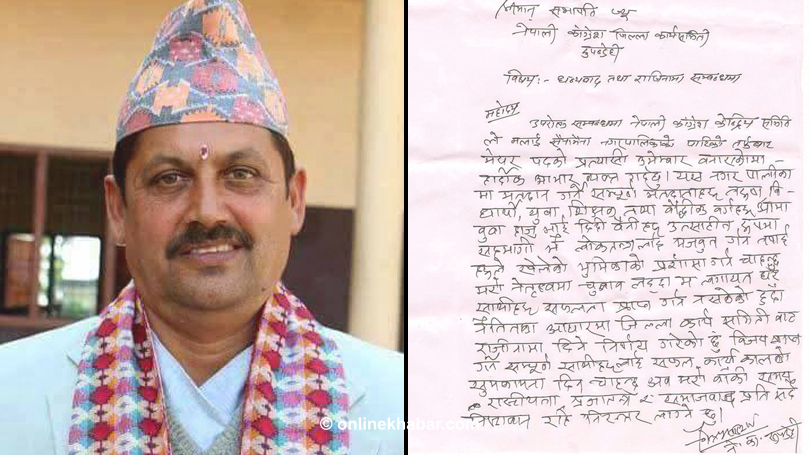 श्रीमान् सभापति ज्यू
नेपाली काँग्रेश जिल्ला कार्यसमिती
रुपन्देही
विषय:- धन्यवाद तथा राजिनामा सम्बन्धमा
महोदय
उपरोक्त सम्बन्धमा नेपाली काँग्रेश केन्द्रिय समिति
ले मलाई सैनामैना नगरपालिकाको पार्टीको तर्फबाट
मेयर पदको प्रत्यासी उमेम्वार बनाएकोमा -
हार्दिक आभार व्यक्त गर्दछु। यस नगर पालीका
मा मतदान गर्ने सम्पूर्ण मतदाताहरु
युवा, शिक्षक तथा बौद्धीक वर्गहरु आमा
बुवा दाजु भाई दिदी बैनीहरु उत्साहीत रुपमा
सहभागी भै लोकतन्त्रलाई मजबुत गर्न तपाई
हरुले खेलेको भूमिकाको प्रशंसा गर्न चाहन्छु
मेरो नेतृत्वमा चुनाव लड्दा म लगायत धेरै
साथीहरु सफलता प्राप्त गर्न नसकेको हुँदा
नैतिकताका आधारमा जिल्ला कार्य समिती बाट
राजीनामा दिने निर्णय गरेको छु विजय प्राप्त
गर्ने सम्पूर्ण साथीहरुलाई सफल कार्यकालको
शुभकामना दिन चाहन्छु अब मेरो बाँकी समय
राष्ट्रियता, प्रजातन्त्र र समाजवाद प्रति सदै
निष्ठावान रहि निरन्तर लाग्ने छु।
© onlinekhabar.com